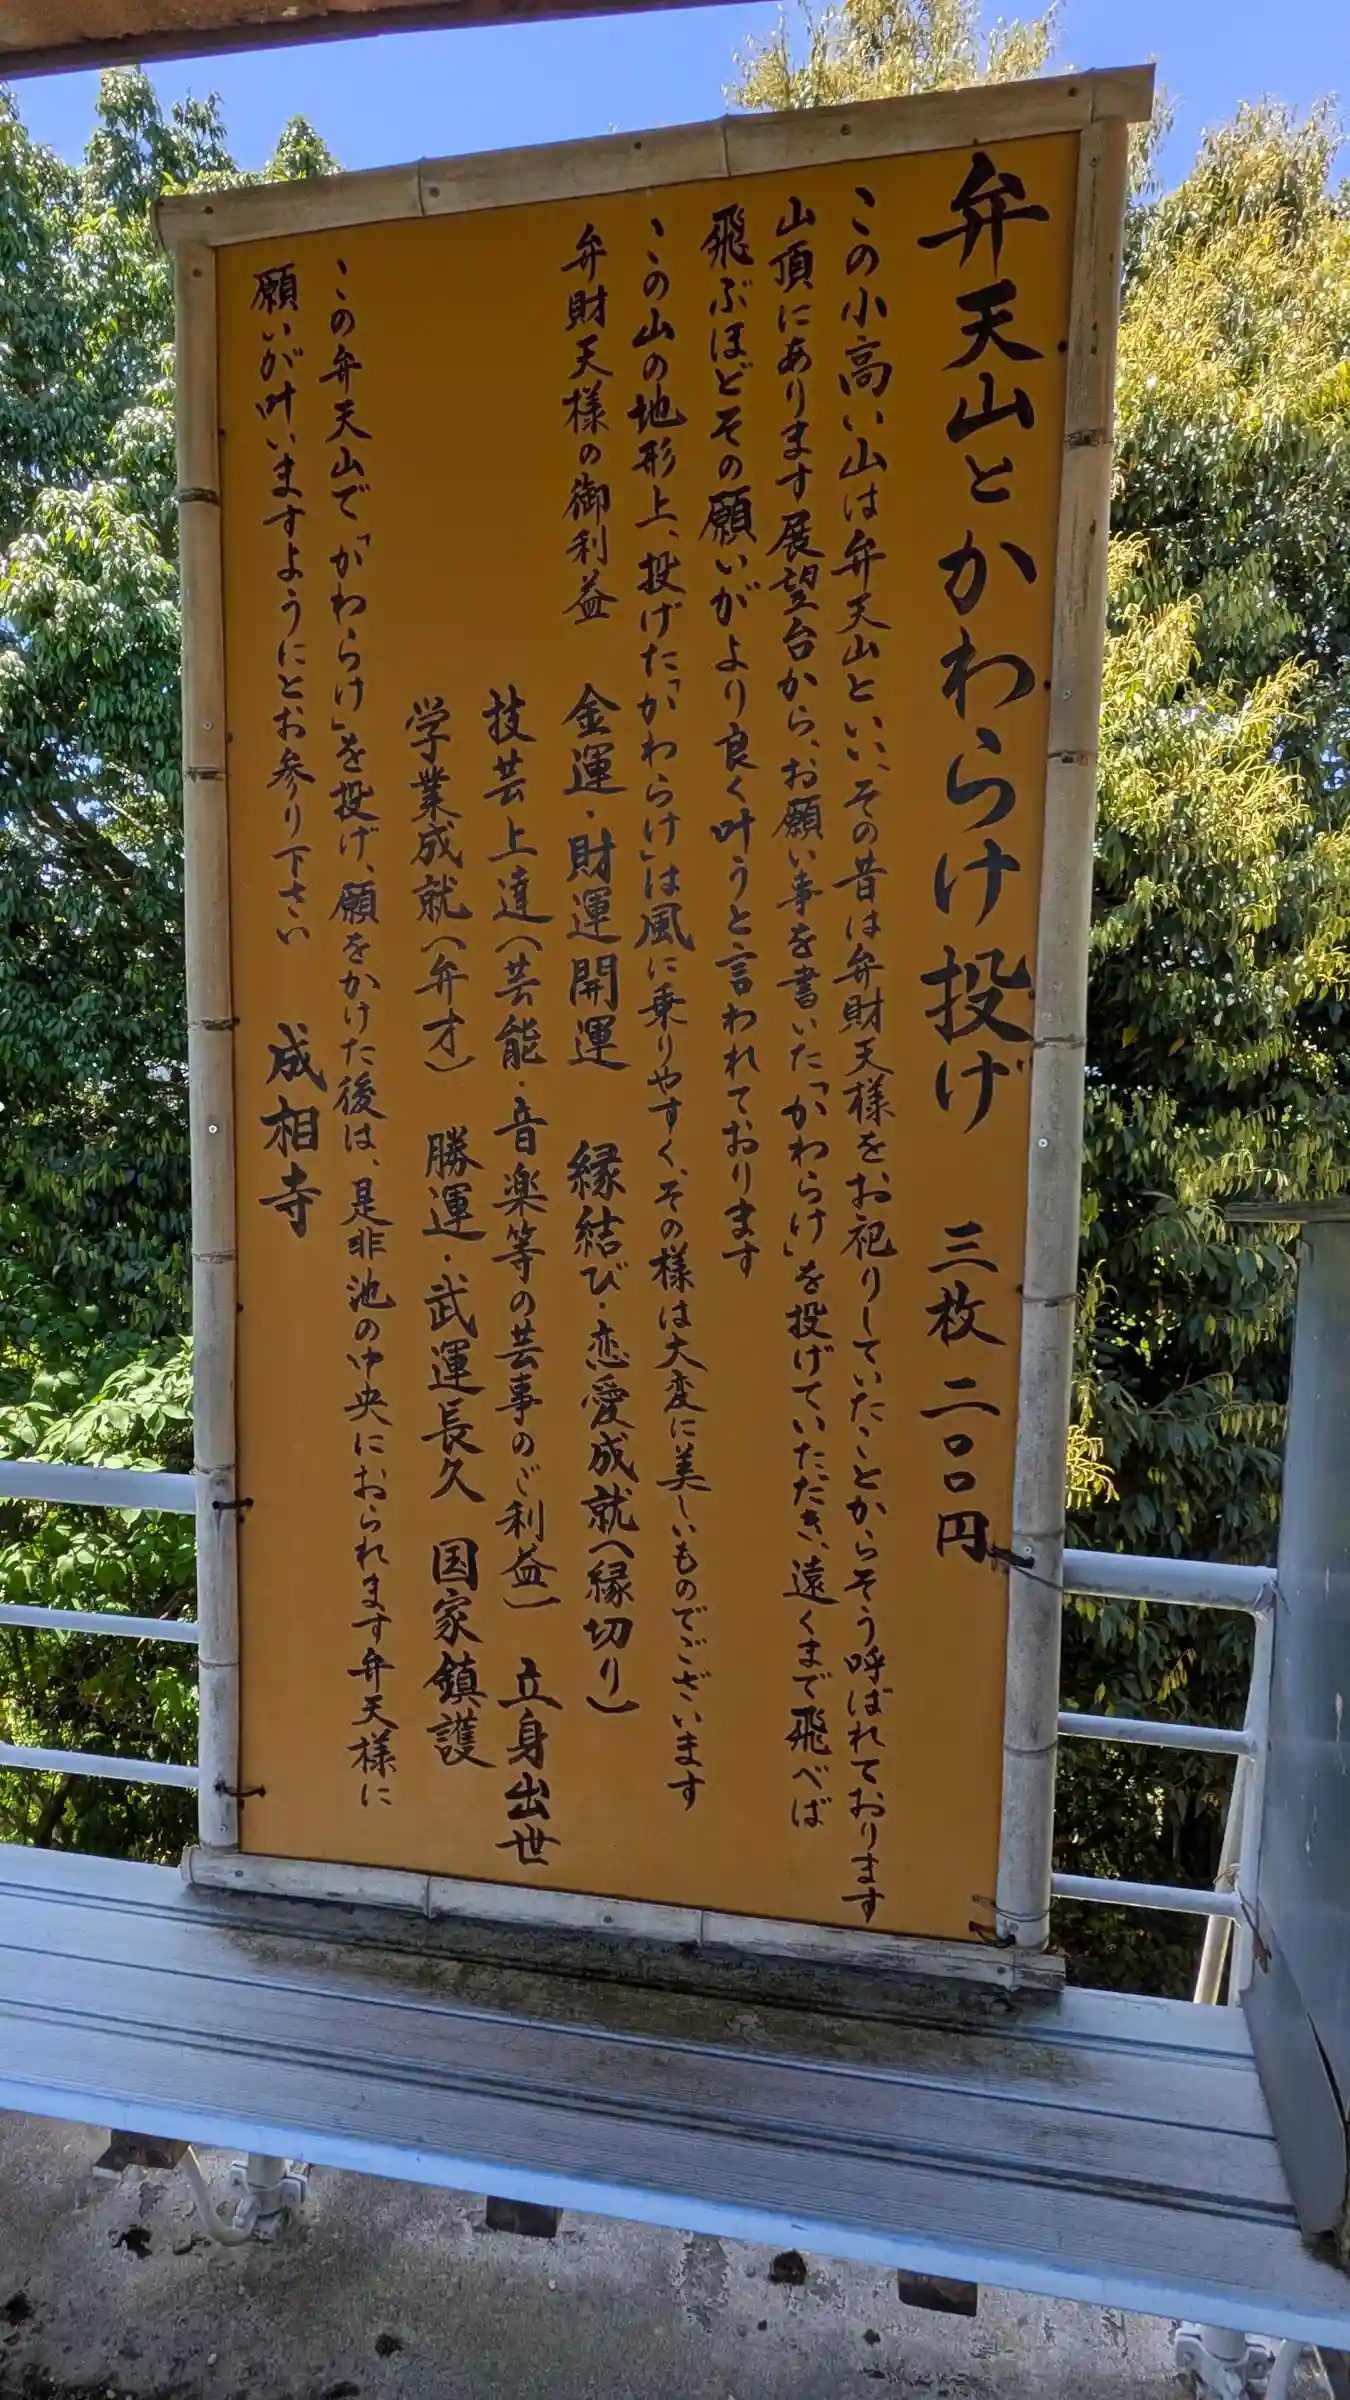 弁天山とかわらけ投げ 三枚 二〇〇円
この小高い山は弁天山といい、その昔は弁財天様をお祀りしていたことからそう呼ばれております
山頂にあります展望台から、お願い事を書いた「かわらけ」を投げていただき、遠くまで飛べば
飛ぶほどその願いがより良く叶うと言われております
この山の地形上、投げた「かわらけ」は風に乗りやすく、その様は大変に美しいものでございます
弁財天様の御利益 金運・財運開運 縁結び・恋愛成就(縁切り)
技芸上達(芸能・音楽等の芸事のご利益) 立身出世
学業成就(弁才) 勝運・武運長久 国家鎮護
この弁天山で「かわらけ」を投げ、願をかけた後は、是非池の中央におられます弁天様に
願いが叶いますようにとお参り下さい 成相寺